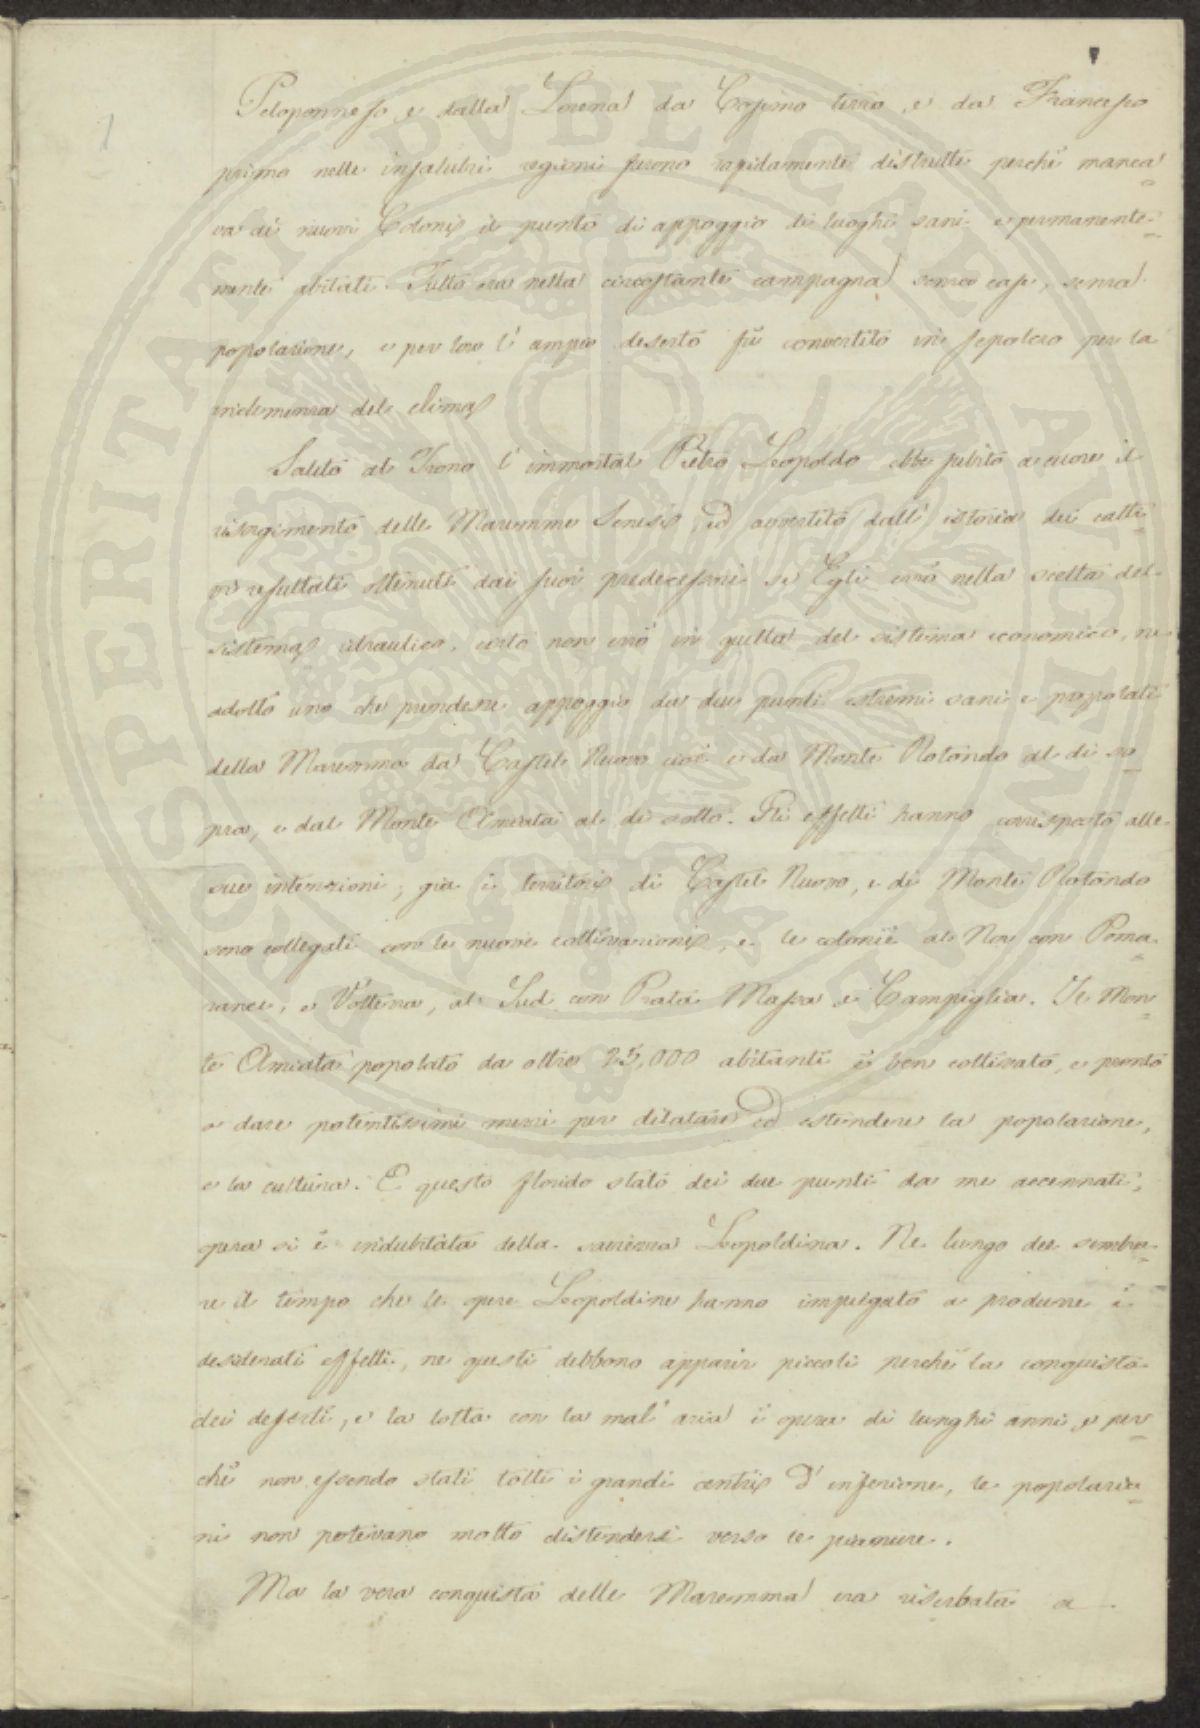 Peloponneso e dalla Lorena da Cosimo terzo e da Francesco
primo nelle insalubri regioni furono rapidamente distrutti perchè manca
va ai nuovi Coloni il punto di appoggio di luoghi sani e permanente-
mente abitati. Tutto era nella circostante campagna senza case, senza
popolazione, e per loro l'ampio deserto fù convertito in sepolcro per la
inclemenza del clima
Salito al Trono l'immortal Pietro Leopoldo ebbe subito a cuore il
risorgimento delle Maremme Senesi, ed avvertito dall'istoria dei catti
vi resultati ottenuti dai suoi predecessori se Egli errò nella scelta del
sistema idraulico, certo non errò in quella del sistema economico, ne
adottò uno che prendesse appoggio da due punti estremi sani e popolati
della Maremma da Castel Nuovo cioè e da Monte Rotondo al di so
pra, e dal Monte Amiata al di sotto. Gli effetti hanno corrisposto alle
sue intenzioni, già i territorj di Castel Nuovo, e di Monte Rotondo
sono collegati con le nuove coltivazioni, e le colonie al Nor con Poma
rance, e Volterra, al Sud con Prata Massa e Campiglia. Il Mon
te Amiata popolato da oltre 25,000 abitanti è ben coltivato, e pronto
a dare potentissimi mezzi per dilatare ed estendere la popolazione,
e la cultura. E questo florido stato dei due punti da me accennati,
opera si è indubitata della saviezza Leopoldina. Ne lungo dee sembra
re il tempo che le opere Leopoldine hanno impiegato a produrre i
desiderati effetti, ne questi debbono apparir piccoli perchè la conquista
dei deserti, e la lotta con la mal'aria è opera di lunghi anni e per
chè non essendo stati tolti i grandi centri d'infezione, le popolazio
ni non potevano molto distendersi verso le pianure.
Ma la vera conquista delle Maremma era riserbata a